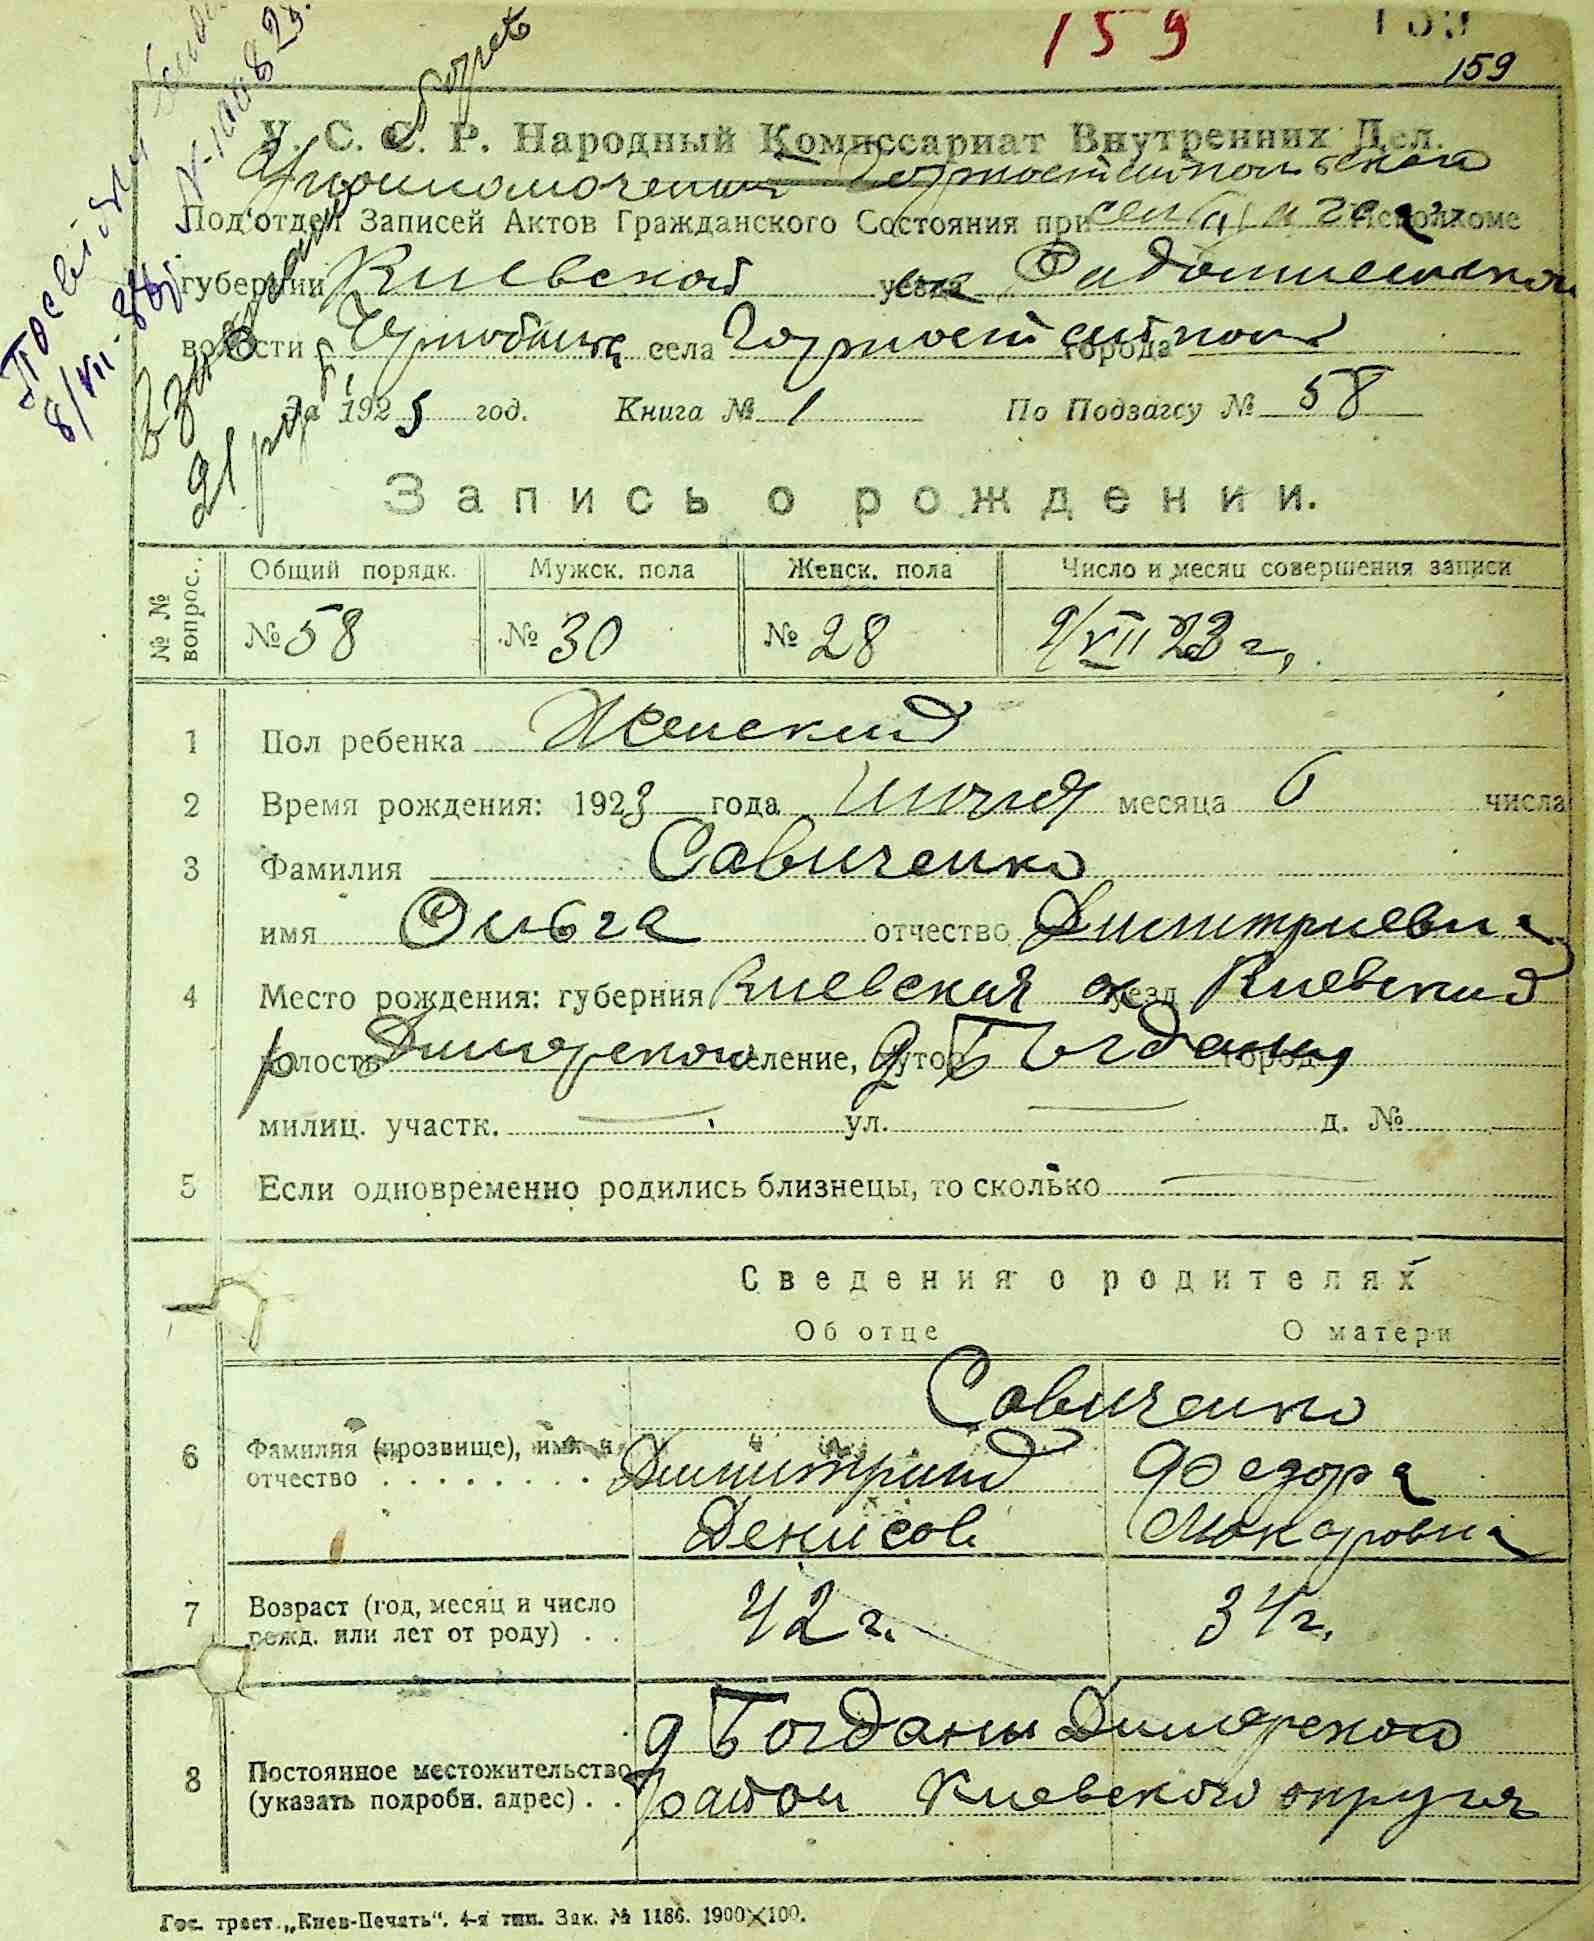 159
159
У. С. С. Р. Народный Комиссариат Внутренних Дел.
Под'отдел Записей Актов Гражданского Состояния при Исполкоме
губернии Киевской
волости села Горностайполь города
За 1923 год. Книга № 1 По Подзагсу № 58
Запись о рождении.
№ № вопрос. Общий порядк. Мужск. пола Женск. пола Число и месяц совершения записи
№ 58 № 30 № 28 9/VII 23 г,
1 Пол ребенка Женский
2 Время рождения: 1923 года июля месяца 6 числа
3 Фамилия Савиченко
имя Ольга отчество Димитриевна
4 Место рождения: губерния Киевская уезд Киевский
волость Димерского селение, хутор д Богданы город
милиц. участк. — ул. — д. №
5 Если одновременно родились близнецы, то сколько —
Сведения о родителях
Об отце О матери
Савиченко
6 Фамилия (прозвище), имя и отчество Димитрий Денисов Федора Макаровна
7 Возраст (год, месяц и число рожд. или лет от роду) 42 г. 34 г.
8 Постоянное местожительство (указать подробн. адрес) д Богданы Димерского
район Киевского округа
Гос. трест. „Киев-Печать“. 4-я тип. Зак. № 1186. 1900×100.